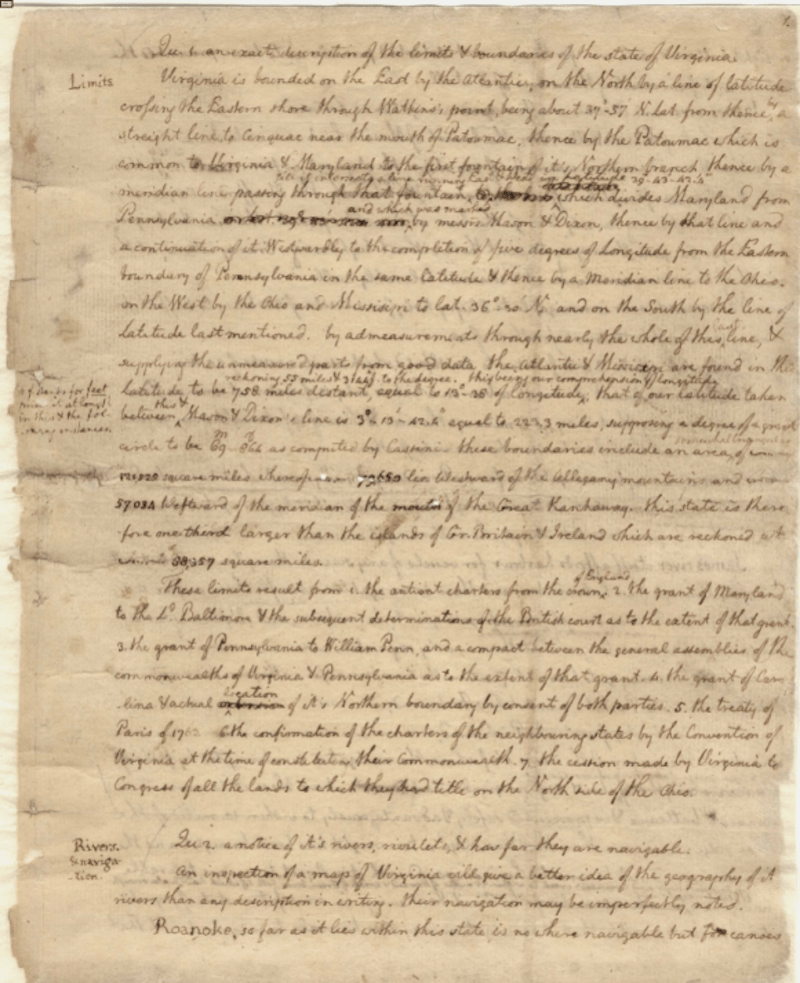 Qu. 1. an exact description of the limits & boundaries of the state of Virginia.
Limits
Virginia is bounded on the East by the Atlantic, on the North by a line of latitude
crossing the Eastern shore through Watkins's point, being about 37°-57' N. Lat. from thence by a
straight line to Cinquac near the mouth of Patowmac, thence by the Patowmac which is
common to Virginia & Maryland to the first fountain of it's Northern branch, thence by a
meridian line passing through that fountain, till it intersects a line running East & West in Latitude 39°-43'-42.4" which divides Maryland from
Pennsylvania and which was marked by messrs Mason & Dixon, thence by that line and
a continuation of it Westwardly to the completion of five degrees of Longitude from the Eastern
boundary of Pennsylvania in the same Latitude & thence by a Meridian line to the Ohio.
on the West by the Ohio and Missisipi to lat. 36°-30' N. and on the South by the line of
latitude last mentioned. by admeasurements through nearly the whole of this last line, &
supplying the unmeasured parts from good data, the Atlantic & Missisipi are found in this
latitude to be 758 miles distant, equal to 13°-38' of longitude, reckoning 55 miles & 3144 feet to the degree. this being our comprehension of longitude, that of our latitude taken
between this & Mason & Dixon's line is 3°-13'-42.4" equal to 223.3 miles, supposing a degree of a great
circle to be 69 m 864 f as computed by Cassini. these boundaries include an area of
121525 square miles whereof 79650 lie Westward of the Allegany mountains, and
57034 Westward of the meridian of the mouth of the Great Kanhaway. this state is there
fore one third larger than the islands of Gr. Britain & Ireland which are reckoned at
88,357 square miles.
These limits result from 1. the antient charters from the crown of England. 2. the grant of Maryland
to the Ld. Baltimore & the subsequent determinations of the British court as to the extent of that grant.
3. the grant of Pennsylvania to William Penn, and a compact between the general assemblies of the
commonwealths of Virginia & Pennsylvania as to the extent of that grant. 4. the grant of Caro
-lina & actual location of it's Northern boundary by consent of both parties. 5. the treaty of
Paris of 1763. 6. the confirmation of the charters of the neighbouring states by the Convention of
Virginia at the time of constituting their Commonwealth. 7. the cession made by Virginia to
Congress of all the lands to which they had title on the North side of the Ohio.
Rivers.
& naviga-
-tion.
Qu. 2. a notice of it's rivers, rivulets, & how far they are navigable.
An inspection of a map of Virginia will give a better idea of the geography of it
rivers than any description in writing. their navigation may be imperfectly noted.
Roanoke, so far as it lies within this state, is no where navigable but for canoes